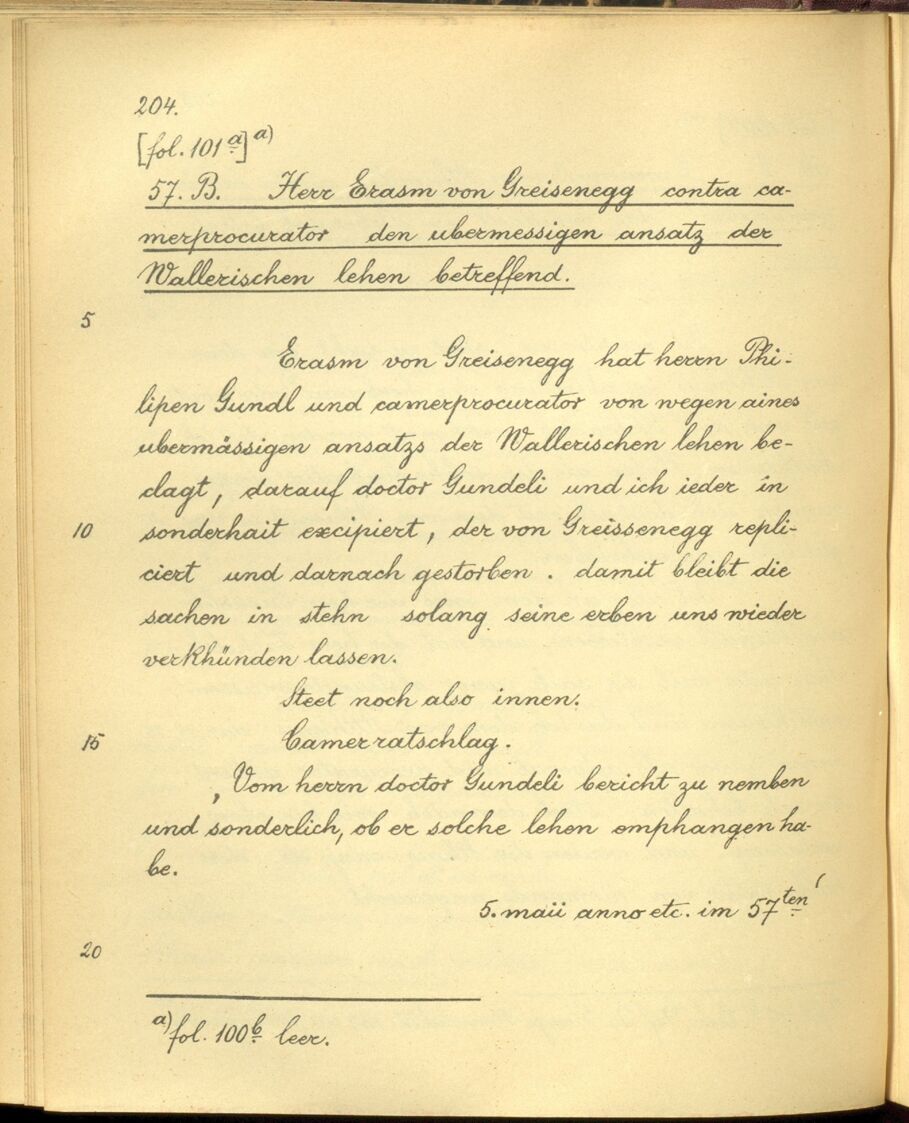 204.
[fol. 101a] a)
57. B. Herr Erasm von Greisenegg contra ca-
merprocurator den ubermessigen ansatz der
Wallerischen lehen betreffend.
5
Erasm von Greisenegg hat herrn Phi-
lipen Gundl und camerprocurator von wegen aines
ubermässigen ansatzs der Wallerischen lehen be-
clagt, darauf doctor Gundeli und ich ieder in
10 sonderhait excipiert, der von Greissenegg repli-
ciert und darnach gestorben. damit bleibt die
sachen in stehn solang seine erben uns wieder
verkhünden lassen.
Steet noch also innen.
15 Camerratschlag.
‚Vom herrn doctor Gundeli bericht zu nemben
und sonderlich, ob er solche lehen emphangen ha-
be.
5. maii anno etc. im 57ten‘
20
a) fol. 100b leer.